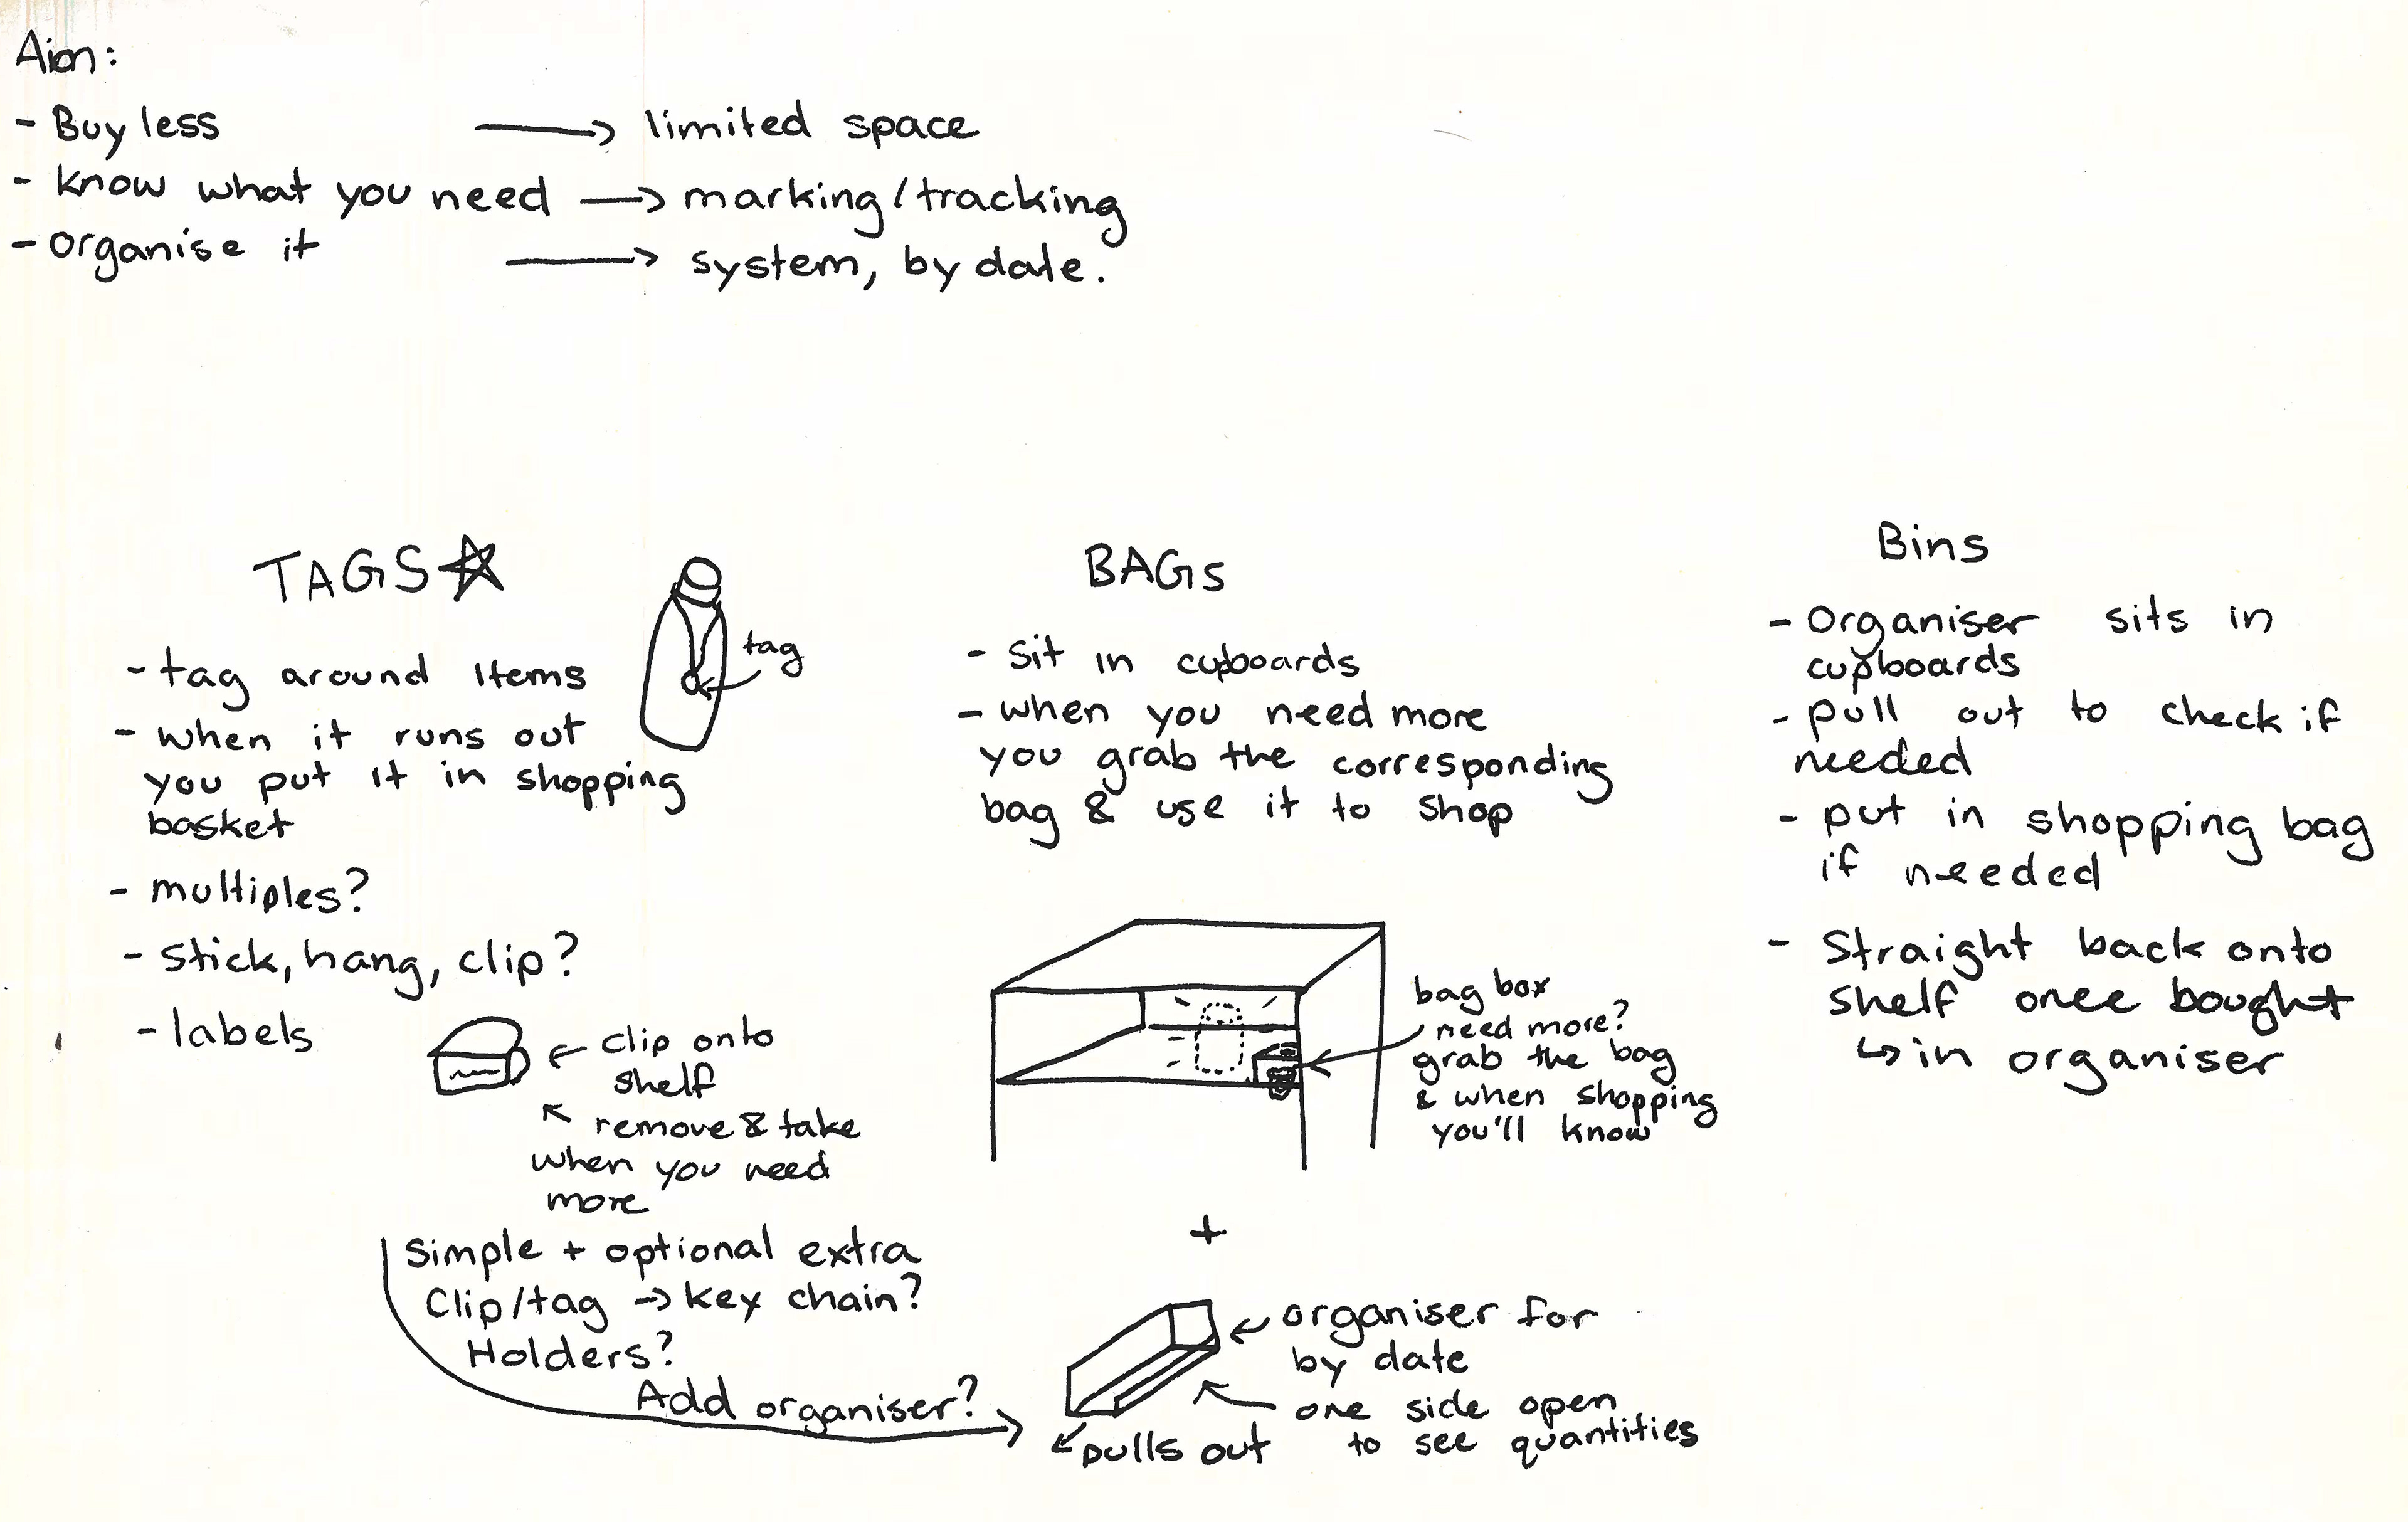 Aim:
- Buy less → limited space
- know what you need → marking/tracking
- organise it → system, by date.
TAGS
- tag around items
- when it runs out
you put it in shopping
basket
- multiples?
- stick, hang, clip?
- labels
tag
← clip onto
shelf
↖ remove & take
when you need
more
Simple + optional extra
Clip/tag → key chain?
Holders?
Add organiser?
BAGS
- sit in cupboards
- when you need more
you grab the corresponding
bag & use it to shop
bag box
need more?
grab the bag
& when shopping
you'll know
+
← organiser for
by date
one side open
to see quantities
pulls out
Bins
- Organiser sits in
cupboards
- pull out to check if
needed
- put in shopping bag
if needed
- Straight back onto
shelf once bought
↳ in organiser